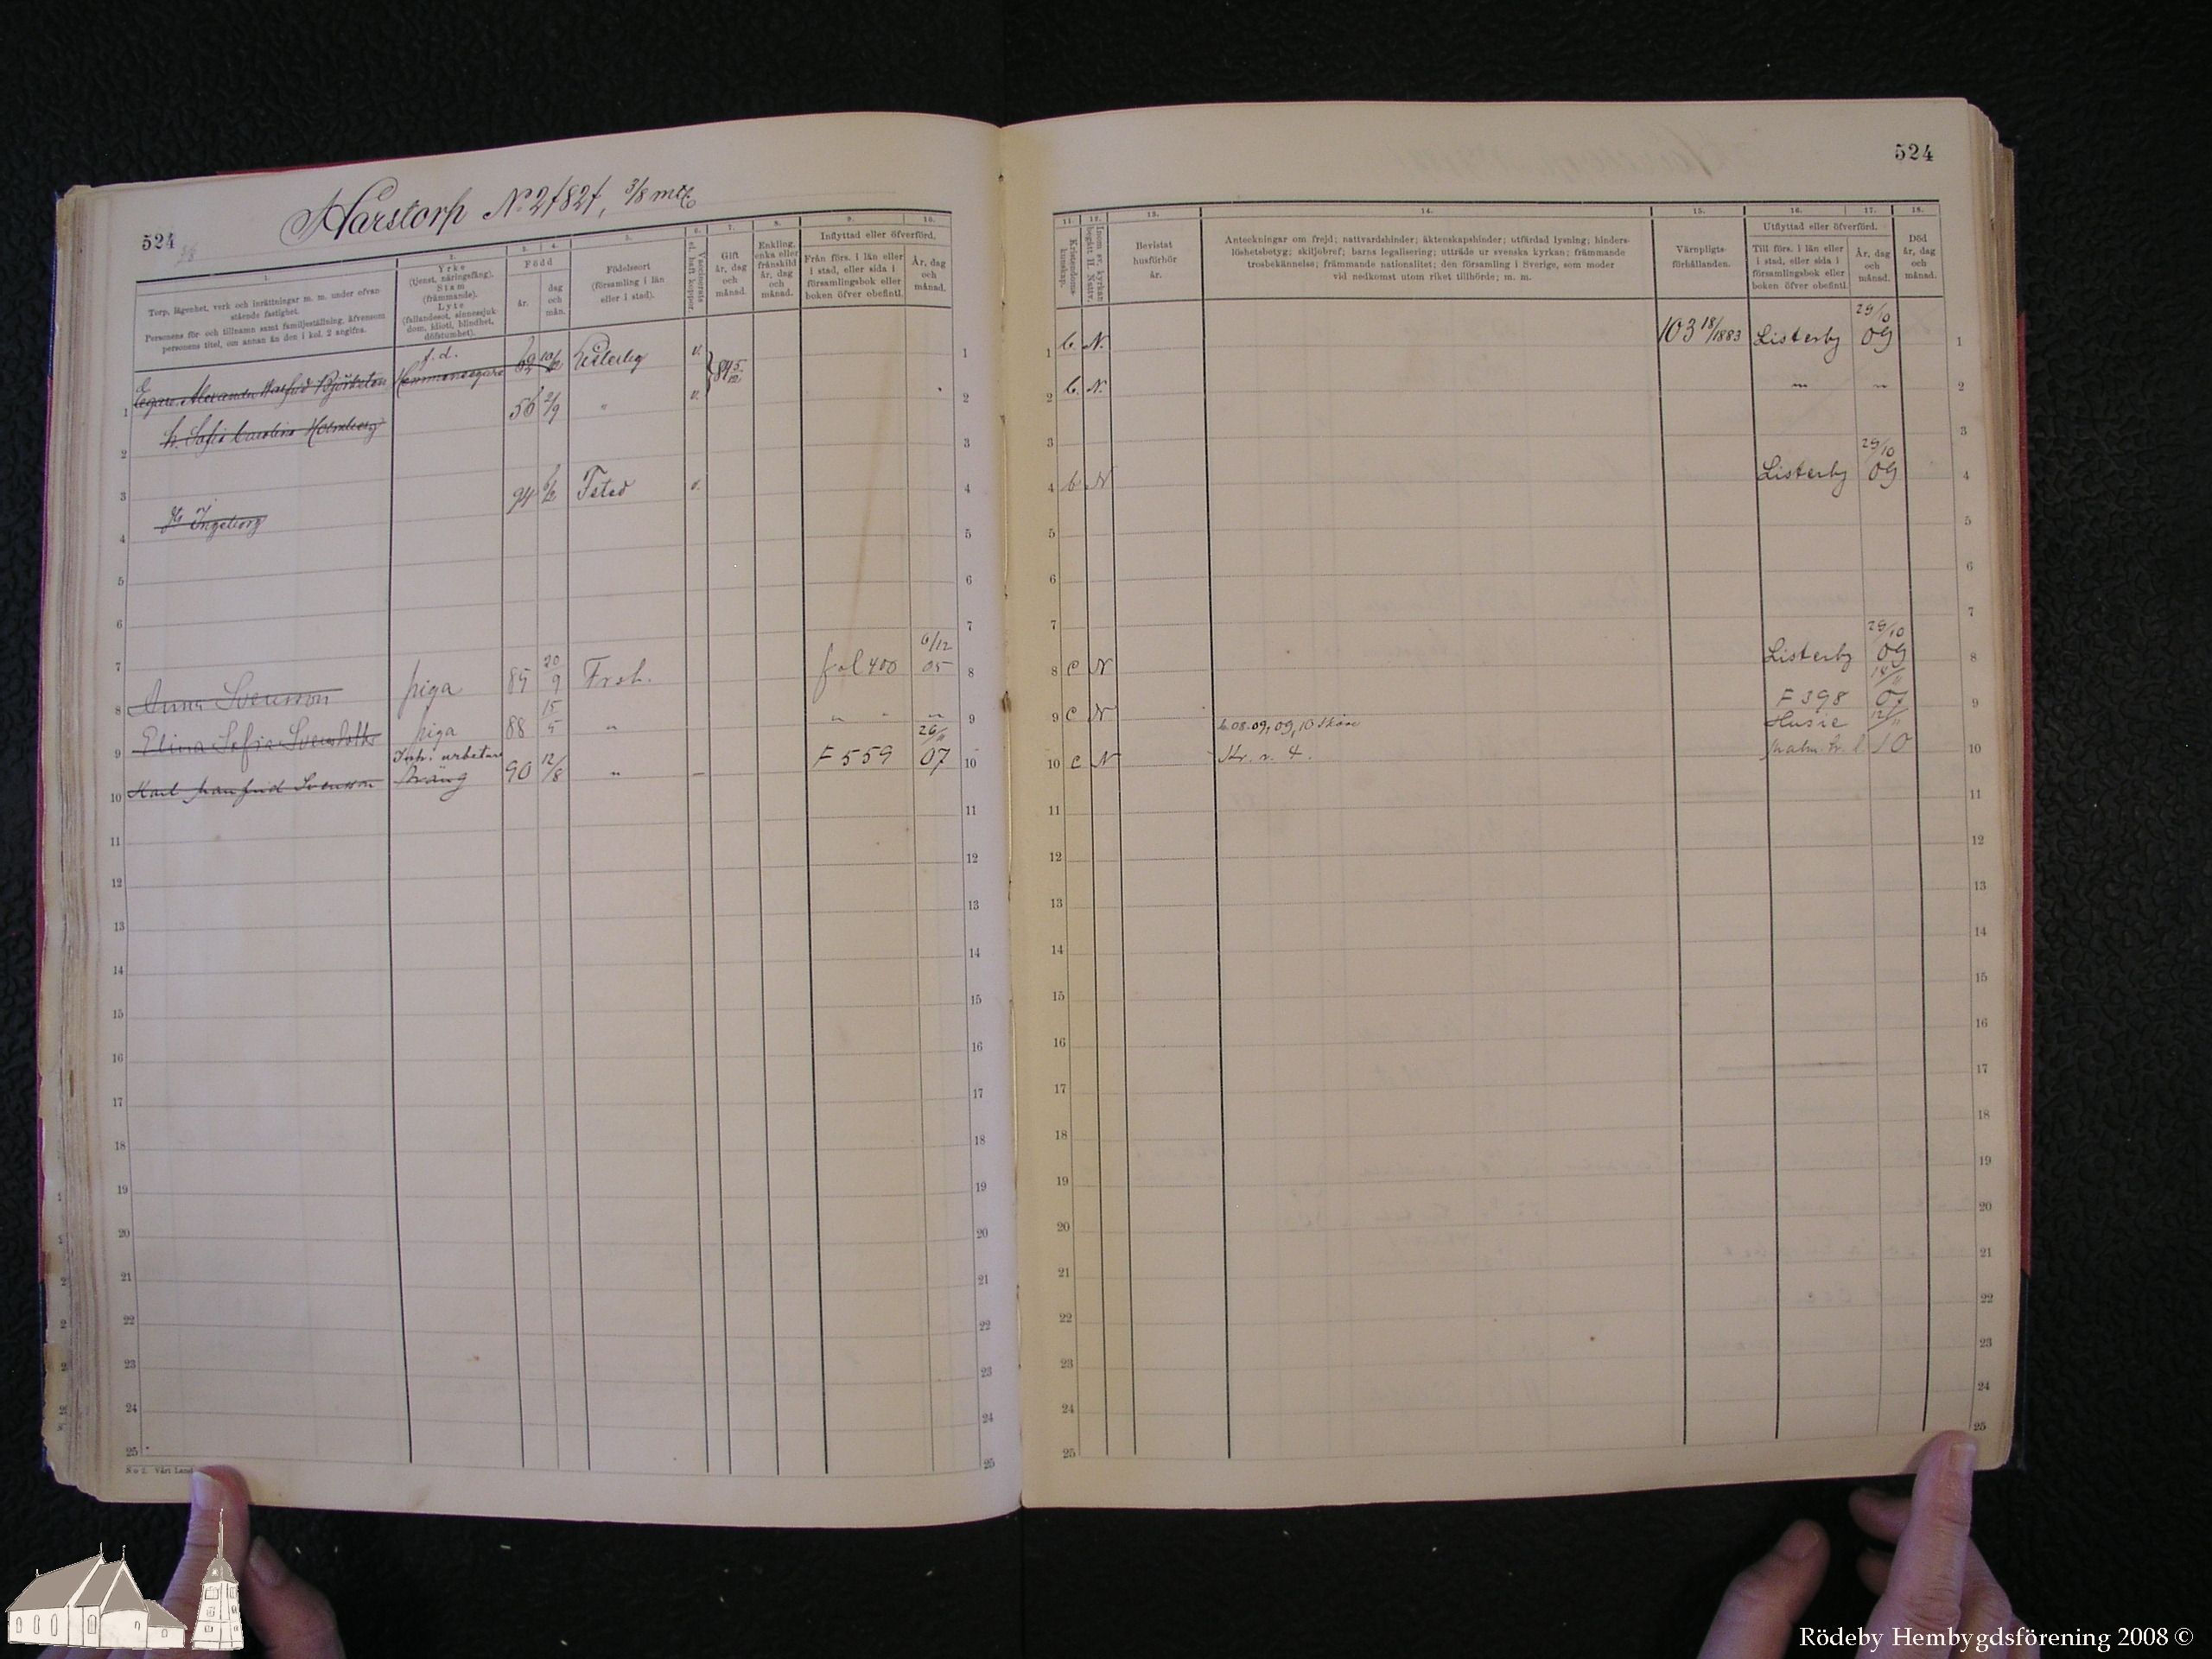 524
Harstorp No 2782+, 3/8 mtl
1.
Torp, lägenhet, verk och inrättningar m. m. under ofvanstående fastighet.
Personens för- och tillnamn samt familjeställning, äfvensom
personens titel, om annan än den i kol. 2 angifna.
2.
Yrke
(tjenst, näringsfång).
Stam
(främmande).
Lyte
(fallandesot, sinnessjukdom, idioti, blindhet,
döfstumhet).
3. 4.
Född
år.
dag
och
mån.
5.
Födelseort
(församling i län
eller i stad).
6.
Vaccinerats
el. haft koppor.
7.
Gift
år, dag
och
månad.
8.
Enkling,
enka eller
frånskild
år, dag
och
månad.
9. 10.
Inflyttad eller öfverförd.
Från förs. i län eller
i stad, eller sida i
församlingsbok eller
boken öfver obefintl.
År, dag
och
månad.
f. d.
1 Egare Alexander Manfrid Björksten Hemmansegare 62 10/12 Listerby v. 84 5/12 1
2 h. Sofia Carolina Holmberg 56 2/9 " v. 2
3 3
4 Ingeborg 94 Fsted v. 4
5 5
6 6
7 7
8 Anna Svensson piga 85 20/9 Frsh. fol 400 6/12 05 8
9 Elina Sofia Svensdotter piga 88 15/5 " " " " 9
Inh. arbetare
10 Karl Manfrid Svensson dräng 90 12/8 " – F 559 26/11 07 10
11 11
12 12
13 13
14 14
15 15
16 16
17 17
18 18
19 19
20 20
21 21
22 22
23 23
24 24
25 25
No 2. Vårt Land
524
11.
Kristendomskunskap.
12.
Inom sv. kyrkan
begått H. Nattv.
13.
Bevistat
husförhör
år.
14.
Anteckningar om frejd; nattvardshinder; äktenskapshinder; utfärdad lysning; hinderslöshetsbetyg; skiljobref; barns legalisering; utträde ur svenska kyrkan; främmande
trosbekännelse; främmande nationalitet; den församling i Sverige, som moder
vid nedkomst utom riket tillhörde; m. m.
15.
Värnpligtsförhållanden.
16. 17.
Utflyttad eller öfverförd.
Till förs. i län eller
i stad, eller sida i
församlingsbok eller
boken öfver obefintl.
År, dag
och
månad.
18.
Död
år, dag
och
månad.
1 b. N. 103 18/1883 Listerby 29/10 09 1
2 b. N. " " 2
3 3
4 b. N Listerby 29/10 09 4
5 5
6 6
7 7
8 c N Listerby 29/10 09 8
9 c N F 398 14/11 07 9
b. 08-09, 09, 10 Skåne Husie 12/11
10 c N Kr. v. 4. Malm. l. 10 10
11 11
12 12
13 13
14 14
15 15
16 16
17 17
18 18
19 19
20 20
21 21
22 22
23 23
24 24
25 25
Rödeby Hembygdsförening 2008 ©